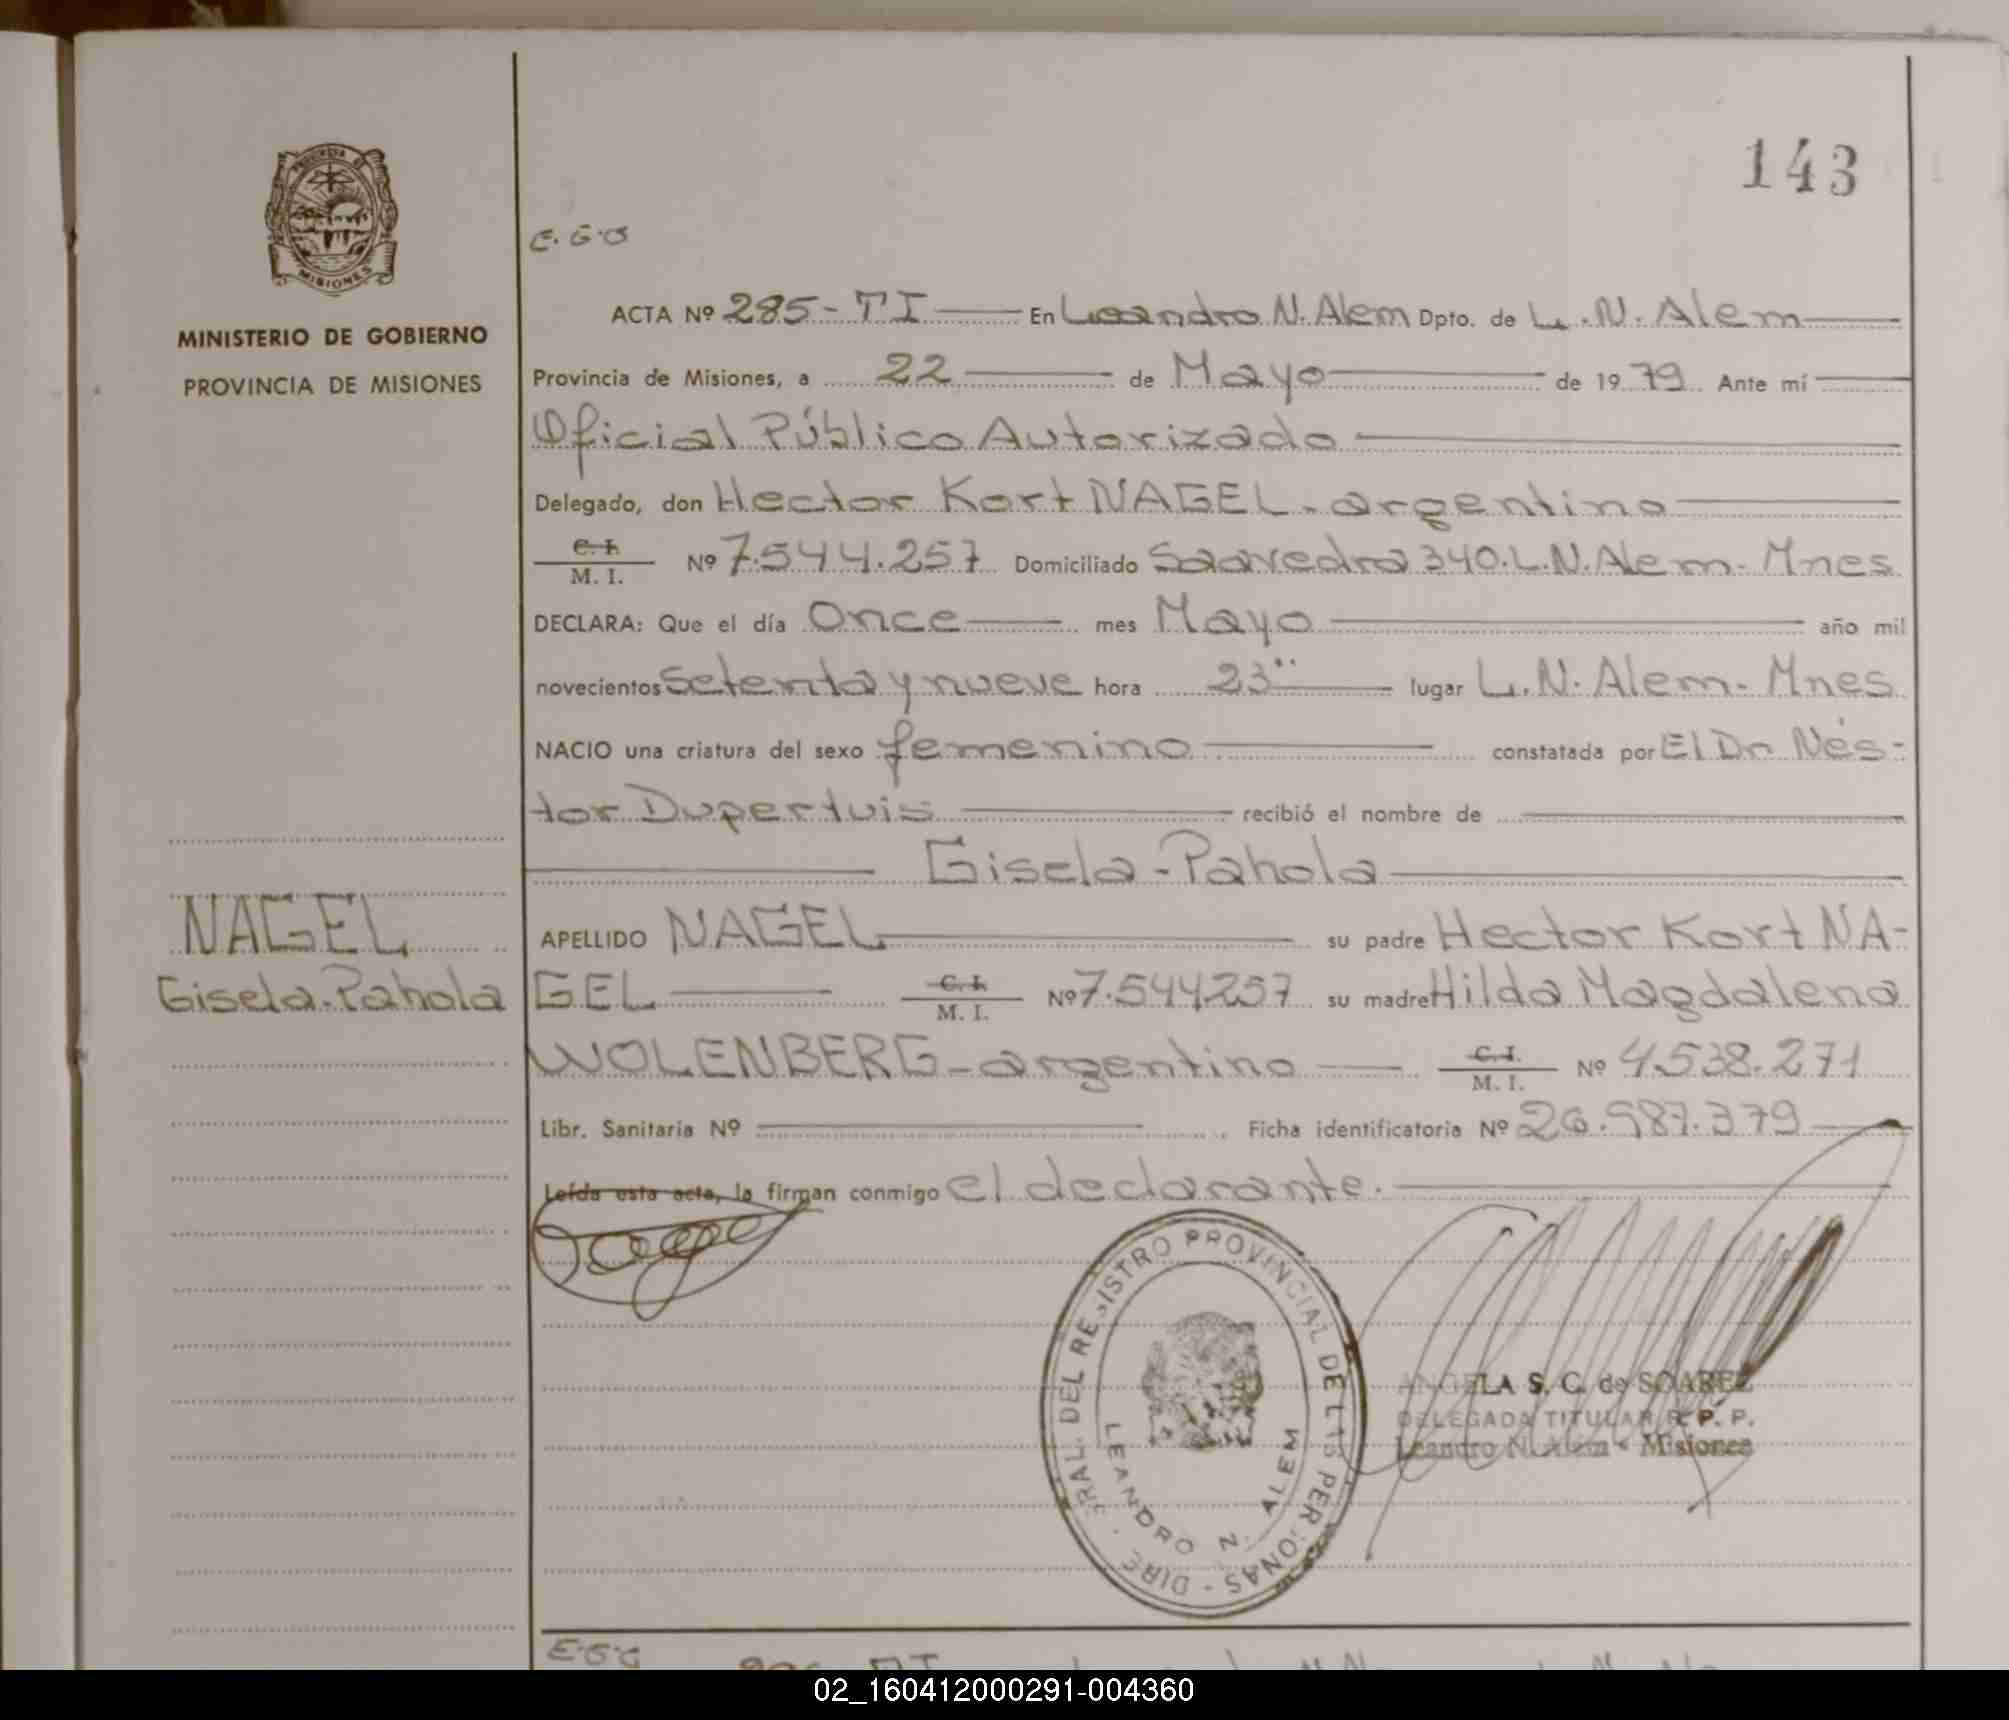 143
PROVINCIA DE
MISIONES
MINISTERIO DE GOBIERNO
PROVINCIA DE MISIONES
ACTA Nº 285-TI En Leandro N. Alem Dpto. de L.N. Alem
Provincia de Misiones, a 22 de Mayo de 1979 Ante mí
Oficial Público Autorizado
Delegado, don Hector Kort NAGEL - argentino
C. I.
M. I. Nº 7.544.257 Domiciliado Saavedra 340. L.N. Alem - Mnes
DECLARA: Que el día Once mes Mayo año mil
novecientos setenta y nueve hora 23 lugar L.N. Alem - Mnes
NACIO una criatura del sexo femenino constatada por El Dr. Nés-
tor Dupertuis recibió el nombre de
Gisela-Pahola
NAGEL
APELLIDO NAGEL su padre Hector Kort NA-
Gisela-Pahola
GEL C. I. M. I. Nº 7.544257 su madre Hilda Magdalena
WOLENBERG - argentino C. I. M. I. Nº 4.538.271
Libr. Sanitaria Nº Ficha identificatoria Nº 26.987.379
Leída esta acta, la firman conmigo el declarante.
DIRE GRAL. DEL REGISTRO PROVINCIAL DE LAS PERSONAS
LEANDRO N. ALEM
ANGELA S. C. de SOAREZ
DELEGADA TITULAR R. P. P.
Leandro N. Alem - Misiones
02_160412000291-004360